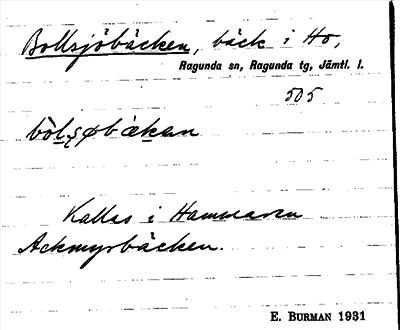 Bollsjöbäcken, bäck i Ho,
Ragunda sn, Ragunda tg, Jämtl. l.
505
Kallas i Hammaren
Ackmyrbäcken.
E. BURMAN 1931